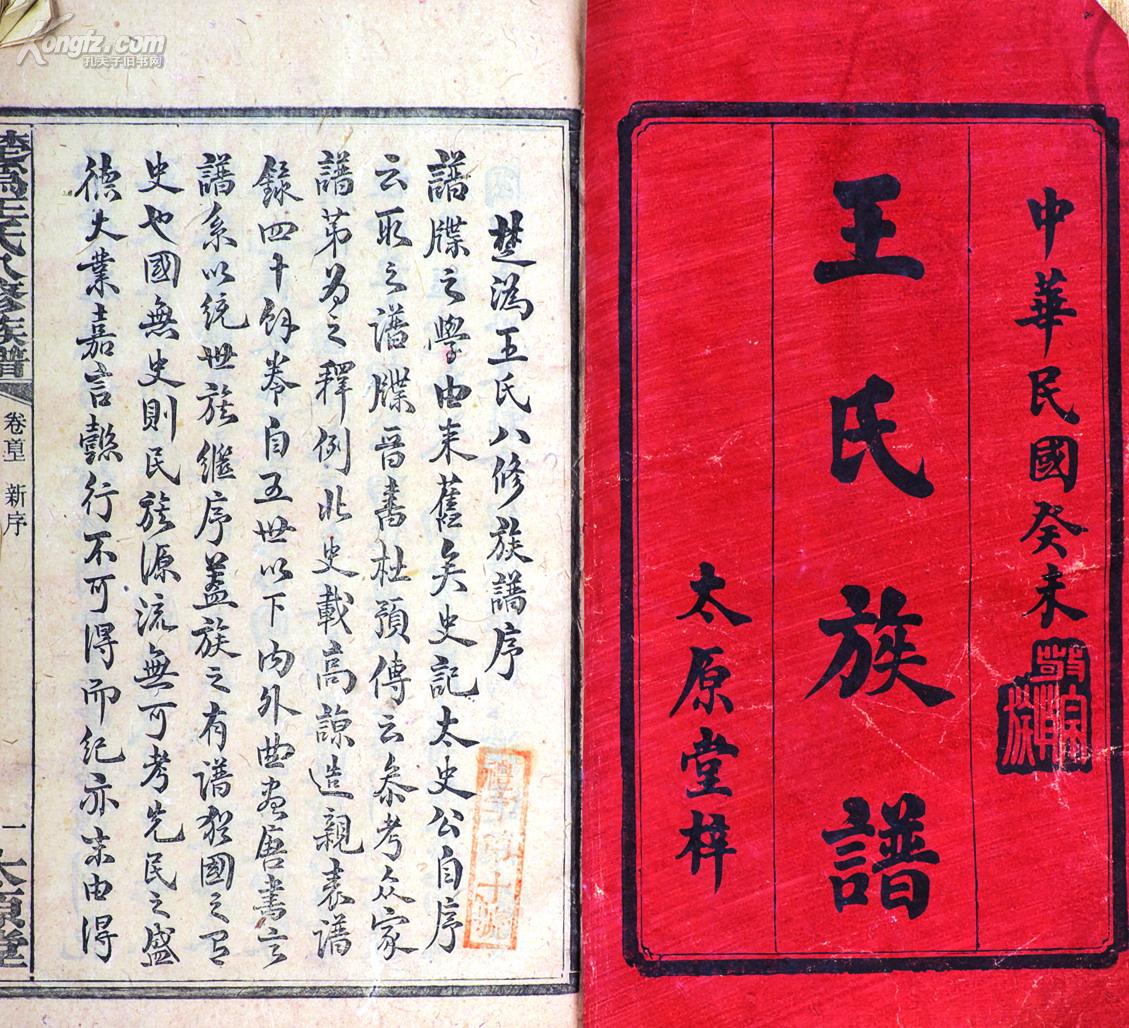 中華民國癸未
敬宗睦族
王氏族譜
太原堂梓
楚溈王氏八修族譜序
譜牒之學由来舊矣史記太史公自序
云取之譜牒晉書杜預傳云叅考众家
譜第為之釋例北史載高諒造親表譜
錄四十餘卷自五世以下内外曲盡唐書言
譜系以統世族繼序蓋族之有譜猶國之有
史也國無史則民族源流無可考先民之盛
德大業嘉言懿行不可得而紀亦末由得
楚溈王氏八修族譜
卷首
新序
一
太原堂
Kongfz.com
孔夫子旧书网